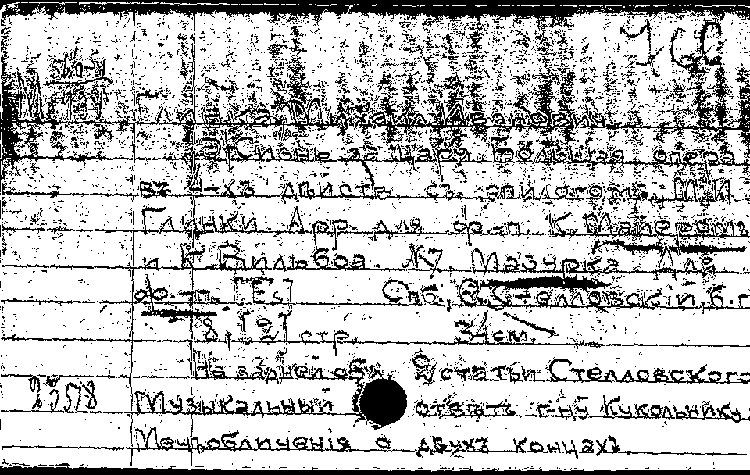 Глинка, Михаил Иванович.
Жизнь за царя. Большая опера
въ 4-хъ дѣйств. съ эпилогомъ. М.И.
Глинки Арр. для ф.-п. К. Майеромъ
и К. Вильбоа №7. Мазурка Для
ф.-п. [Es] Спб., Ѳ. Стелловскій, б.г.
8, [2] стр. 34см.
На задней обл. статьи Стелловского
23578 Музыкальный отвѣтъ г-ну Кукольнику,
о двухъ концахъ.